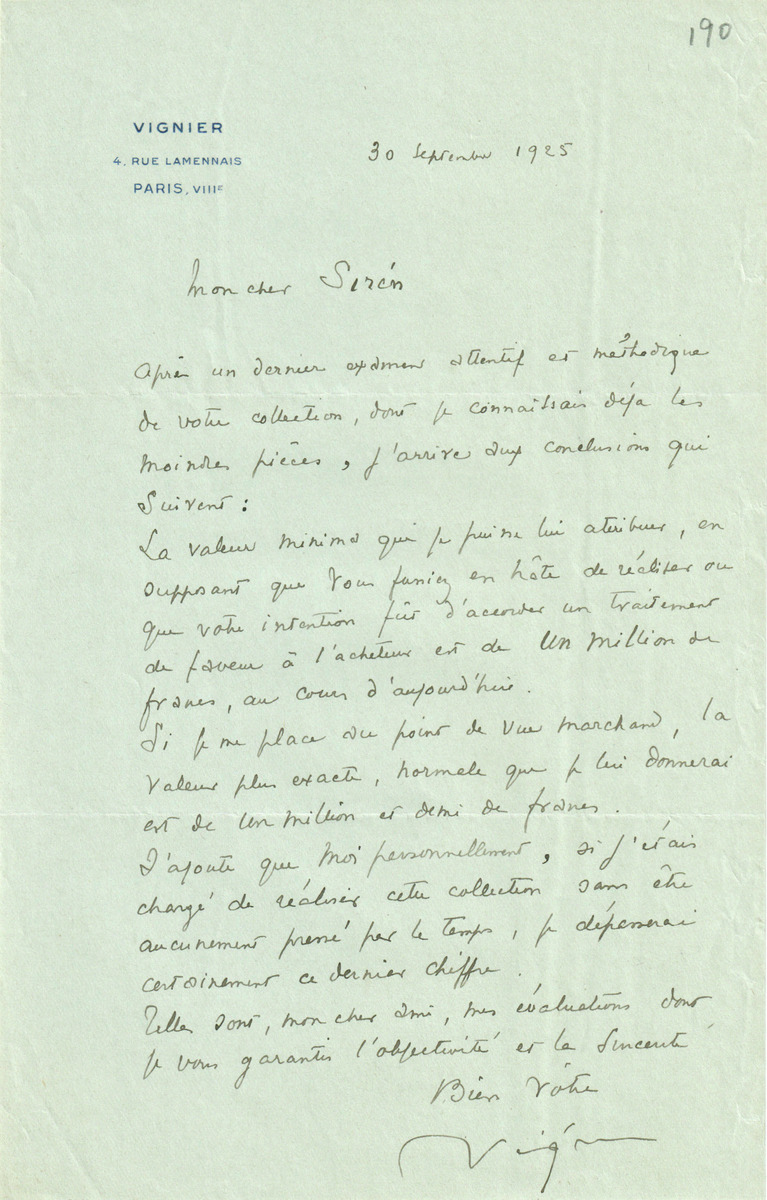 190
VIGNIER
4, RUE LAMENNAIS
PARIS, VIIIE
30 Septembre 1925
Mon cher Sirén
Après un dernier examen attentif et méthodique
de votre collection, dont je connaissais déja les
moindres pièces, j'arrive aux conclusions qui
suivent :
La valeur minima que je puisse lui atribuer, en
supposant que vous fussiez en hâte de réaliser ou
que votre intention fût d'accorder un traitement
de faveur à l'acheteur est de Un million de
francs, au cours d'aujourd'hui.
Si je me place au point de vue marchand, la
valeur plus exacte, normale que je lui donnerai
est de Un million et demi de francs.
J'ajoute que moi personnellement, si j'étais
chargé de réaliser cette collection sans être
aucunement pressé par le temps, je dépasserai
certainement ce dernier chiffre.
Telles sont, mon cher ami, mes évaluations dont
je vous garantis l'objectivité et la sincerité
Bien Vôtre
Vignier